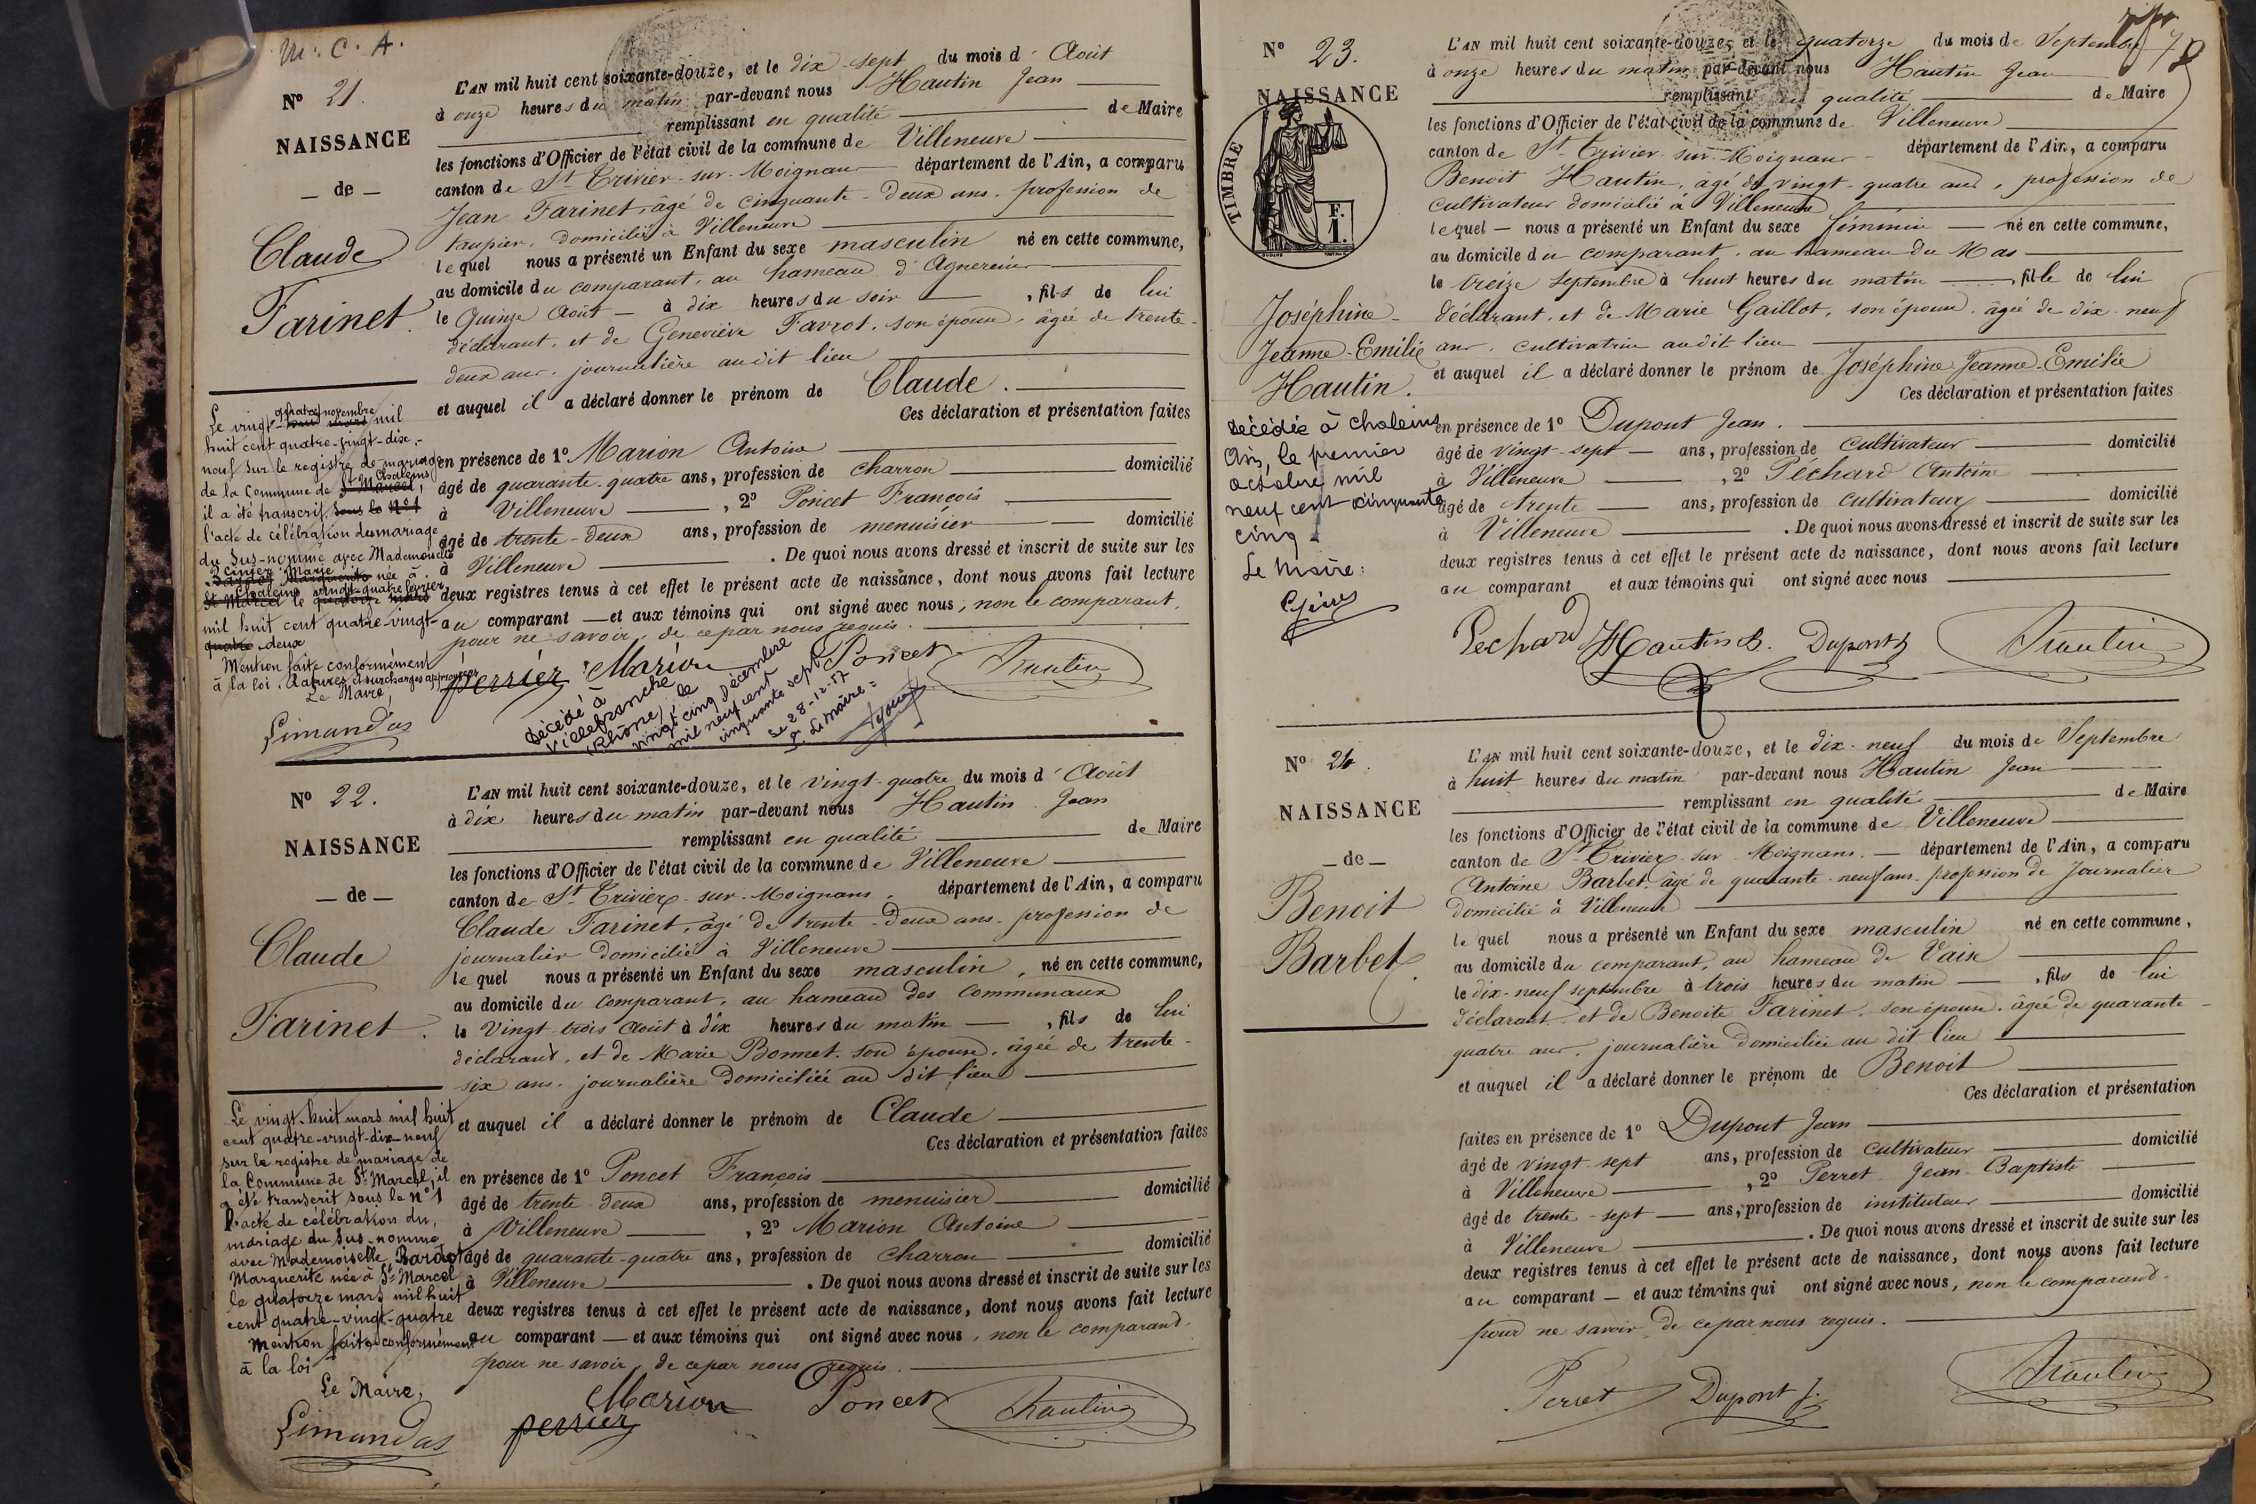 M. C. A.
N° 21.
NAISSANCE
— de —
Claude
Farinet.
L'AN mil huit cent soixante-douze, et le dix-sept du mois d'Août
à onze heures du matin par-devant nous Hautin Jean
remplissant en qualité de Maire
les fonctions d'Officier de l'état civil de la commune de Villeneuve
canton de St Trivier-sur-Moignans département de l'Ain, a comparu
Jean Farinet, âgé de cinquante-deux ans, profession de
taupier, domicilié à Villeneuve
lequel nous a présenté un Enfant du sexe masculin né en cette commune,
au domicile du comparant, au hameau d'Agnereins
le Quinze Août — à dix heures du soir — , fils de lui
déclarant, et de Geneviève Favrot, son épouse, âgée de trente-
deux ans, journalière audit lieu
et auquel il a déclaré donner le prénom de Claude.
Ces déclaration et présentation faites
en présence de 1° Marion Antoine
âgé de quarante-quatre ans, profession de charron domicilié
à Villeneuve , 2° Poncet François
âgé de trente-deux ans, profession de menuisier domicilié
à Villeneuve . De quoi nous avons dressé et inscrit de suite sur les
deux registres tenus à cet effet le présent acte de naissance, dont nous avons fait lecture
au comparant — et aux témoins qui ont signé avec nous, non le comparant,
pour ne savoir, de ce par nous requis.
perrier Marion Poncet Hautin
Le vingt-quatre novembre mil
huit cent quatre-vingt-dix-
neuf sur le registre de mariage
de la Commune de St Marcel, Chaleins
il a été transcrit sous le N° 1
l'acte de célébration du mariage
du sus-nommé avec Mademoiselle
Marie née à
Bardet Marguerite
Chaleins vingt-quatre février
St Marcel le quatorze mars
mil huit cent quatre-vingt-
quatre deux
Mention faite conformément
à la loi. Ratures et surcharges approuvées
Le Maire,
Limandas
Décédé à
Villefranche
(Rhône), le
vingt cinq Décembre
mil neuf cent
cinquante sept
Le 28-12-57
Le Maire:
N° 22.
NAISSANCE
— de —
Claude
Farinet.
L'AN mil huit cent soixante-douze, et le vingt-quatre du mois d'Août
à dix heures du matin par-devant nous Hautin Jean
remplissant en qualité de Maire
les fonctions d'Officier de l'état civil de la commune de Villeneuve
canton de St Trivier-sur-Moignans département de l'Ain, a comparu
Claude Farinet, âgé de trente-deux ans, profession de
journalier domicilié à Villeneuve
lequel nous a présenté un Enfant du sexe masculin, né en cette commune,
au domicile du comparant, au hameau des Communaux
le Vingt-trois Août à dix heures du matin — , fils de lui
déclarant, et de Marie Bonnet, son épouse, âgée de trente-
six ans, journalière domiciliée au dit lieu
et auquel il a déclaré donner le prénom de Claude
Ces déclaration et présentation faites
en présence de 1° Poncet François
âgé de trente-deux ans, profession de menuisier domicilié
à Villeneuve , 2° Marion Antoine
âgé de quarante-quatre ans, profession de charron domicilié
à Villeneuve . De quoi nous avons dressé et inscrit de suite sur les
deux registres tenus à cet effet le présent acte de naissance, dont nous avons fait lecture
au comparant — et aux témoins qui ont signé avec nous, non le comparant,
pour ne savoir, de ce par nous requis.
Marion Poncet Hautin
perrier
Le vingt-huit mars mil huit
cent quatre-vingt-dix-neuf
sur le registre de mariage de
la Commune de St Marcel, il
a été transcrit sous le N° 1
l'acte de célébration du
mariage du sus-nommé
avec Mademoiselle Bardet
Marguerite née à St Marcel
le quatorze mars mil huit
cent quatre-vingt-quatre
Mention faite conformément
à la loi
Le Maire,
Limandas
N° 23.
NAISSANCE
TIMBRE
F.
1.
Joséphine-
Jeanne-Emilie
Hautin.
L'AN mil huit cent soixante-douze, et le quatorze du mois de Septembre
à onze heures du matin par-devant nous Hautin Jean
remplissant en qualité de Maire
les fonctions d'Officier de l'état civil de la commune de Villeneuve
canton de St Trivier-sur-Moignans département de l'Ain, a comparu
Benoit Hautin, âgé de vingt-quatre ans, profession de
cultivateur domicilié à Villeneuve
lequel — nous a présenté un Enfant du sexe féminin — né en cette commune,
au domicile du comparant, au hameau du Mas
le treize septembre à huit heures du matin — fille de lui
déclarant, et de Marie Gaillot, son épouse, âgée de dix-neuf
ans, cultivatrice audit lieu
et auquel il a déclaré donner le prénom de Joséphine Jeanne-Emilie
Ces déclaration et présentation faites
en présence de 1° Dupont Jean.
âgé de vingt-sept — ans, profession de cultivateur domicilié
à Villeneuve , 2° Péchard Antoine
âgé de trente — ans, profession de cultivateur domicilié
à Villeneuve . De quoi nous avons dressé et inscrit de suite sur les
deux registres tenus à cet effet le présent acte de naissance, dont nous avons fait lecture
au comparant et aux témoins qui ont signé avec nous
Pechard Hautin B. Dupont J Hautin
Décédée à Chaleins
Ain, le premier
octobre mil
neuf cent cinquante
cinq.
Le Maire:
N° 24.
NAISSANCE
— de —
Benoit
Barbet.
L'AN mil huit cent soixante-douze, et le dix-neuf du mois de Septembre
à huit heures du matin par-devant nous Hautin Jean
remplissant en qualité de Maire
les fonctions d'Officier de l'état civil de la commune de Villeneuve
canton de St Trivier-sur-Moignans — département de l'Ain, a comparu
Antoine Barbet, âgé de quarante-neuf ans, profession de Journalier
domicilié à Villeneuve
lequel nous a présenté un Enfant du sexe masculin né en cette commune,
au domicile du comparant, au hameau de Vaise
le dix-neuf septembre à trois heures du matin — , fils de lui
déclarant, et de Benoite Farinet, son épouse, âgée de quarante-
quatre ans, journalière domiciliée au dit lieu
et auquel il a déclaré donner le prénom de Benoit
Ces déclaration et présentation
faites en présence de 1° Dupont Jean
âgé de vingt-sept ans, profession de cultivateur domicilié
à Villeneuve , 2° Perret Jean-Baptiste
âgé de trente-sept — ans, profession de instituteur domicilié
à Villeneuve . De quoi nous avons dressé et inscrit de suite sur les
deux registres tenus à cet effet le présent acte de naissance, dont nous avons fait lecture
au comparant — et aux témoins qui ont signé avec nous, non le comparant,
pour ne savoir, de ce par nous requis.
Perret Dupont J. Hautin